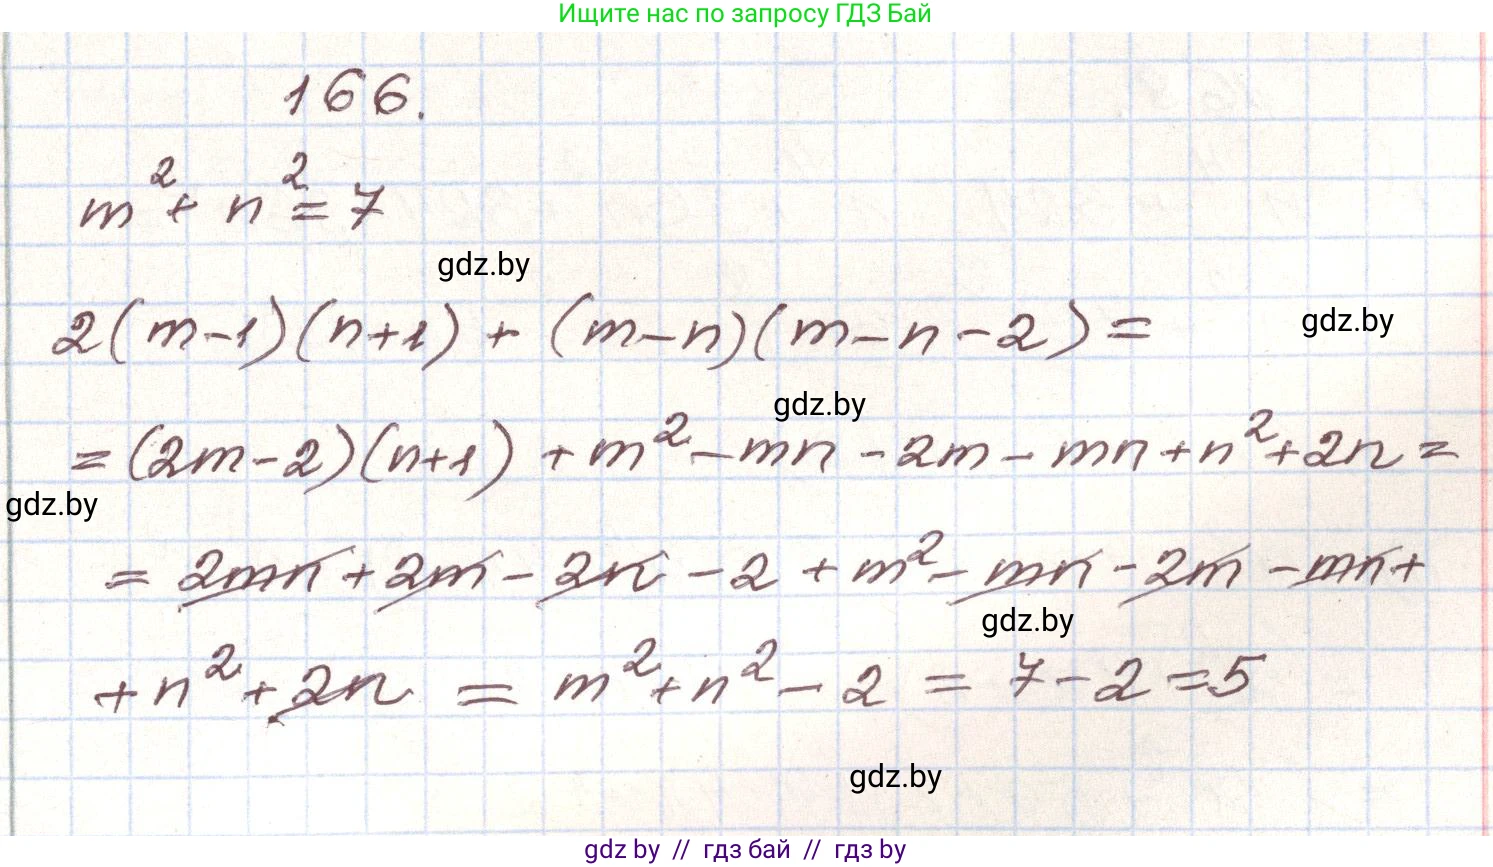 Ищите нас по запросу ГДЗ Бай
166.
m² + n² = 7
gdz.by
2(m-1)(n+1) + (m-n)(m-n-2) =
gdz.by
gdz.by
= (2m-2)(n+1) + m² - mn - 2m - mn + n² + 2n =
gdz.by
= 2mn + 2m - 2n - 2 + m² - mn - 2m - mn +
gdz.by
+ n² + 2n = m² + n² - 2 = 7 - 2 = 5
gdz.by
gdz.by // гдз бай // гдз by